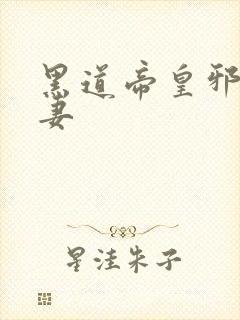 黑道帝皇邪
妻
星洼朱子